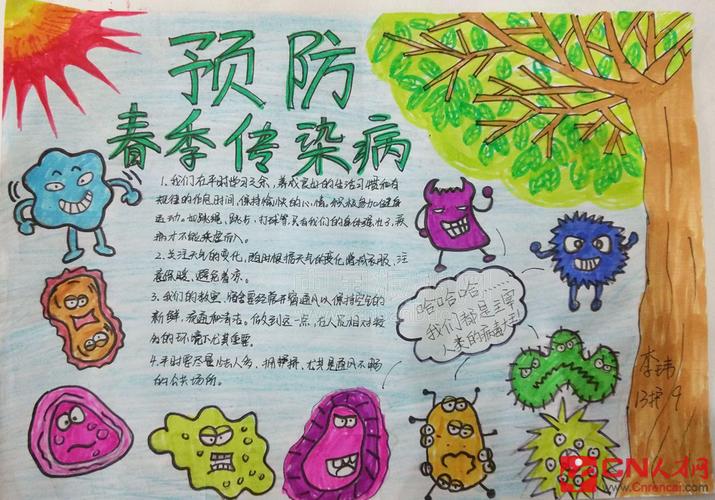 预防
春季传染病
1、我们在平时学习之余，养成良好的生活习惯和有
规律的作息时间，保持愉快的心情。积极参加健身
运动。如跳绳、跑步、打球等，只有我们的身体强壮了，疾
病才不能乘虚而入。
2、关注天气的变化，随时根据天气的变化增减衣服，注
意保暖，避免着凉。
3、我们的教室、宿舍要经常开窗通风以保持空气的
新鲜，夜里加清洁。做到这一点，在人员相对较
多的环境下尤其重要。
4、平时要尽量少去人多、拥挤、尤其是通风不畅
的公共场所。
哈哈哈……
我们都是主宰
人类的病毒大王
李玮
13护9
CN人才网
www.Cnrencai.com